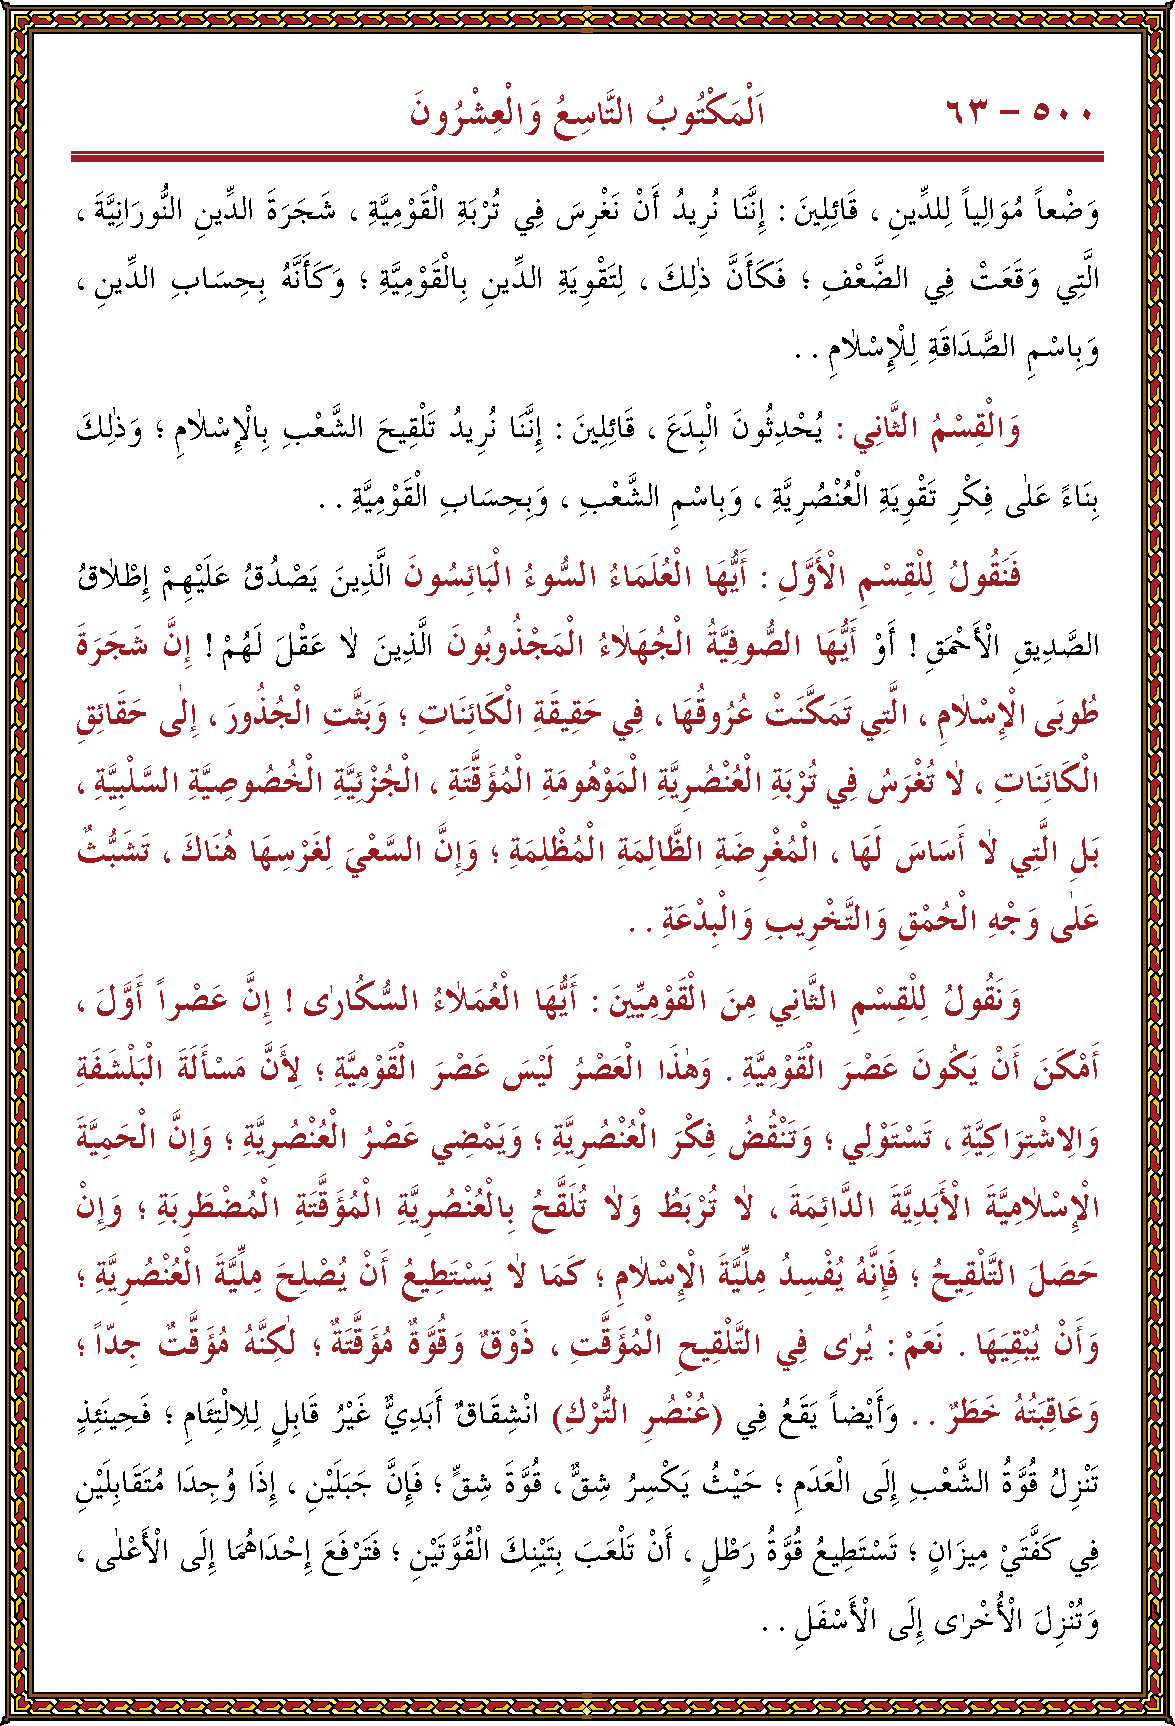 ٥٠٠ - ٦٣ اَلْمَكْتُوبُ التَّاسِعُ وَالْعِشْرُونَ
وَضْعاً مُوَالِياً لِلدِّينِ ، قَائِلِينَ : إِنَّنَا نُرِيدُ أَنْ نَغْرِسَ فِي تُرْبَةِ الْقَوْمِيَّةِ ، شَجَرَةَ الدِّينِ النُّورَانِيَّةَ ،
الَّتِي وَقَعَتْ فِي الضَّعْفِ ؛ فَكَأَنَّ ذٰلِكَ ، لِتَقْوِيَةِ الدِّينِ بِالْقَوْمِيَّةِ ؛ وَكَأَنَّهُ بِحِسَابِ الدِّينِ ،
وَبِاسْمِ الصَّدَاقَةِ لِلْإِسْلَامِ . .
وَالْقِسْمُ الثَّانِي : يُحْدِثُونَ الْبِدَعَ ، قَائِلِينَ : إِنَّنَا نُرِيدُ تَلْقِيحَ الشَّعْبِ بِالْإِسْلَامِ ؛ وَذٰلِكَ
بِنَاءً عَلٰى فِكْرِ تَقْوِيَةِ الْعُنْصُرِيَّةِ ، وَبِاسْمِ الشَّعْبِ ، وَبِحِسَابِ الْقَوْمِيَّةِ . .
فَنَقُولُ لِلْقِسْمِ الْأَوَّلِ : أَيُّهَا الْعُلَمَاءُ السُّوءُ الْبَائِسُونَ الَّذِينَ يَصْدُقُ عَلَيْهِمْ إِطْلَاقُ
الصَّدِيقِ الْأَحْمَقِ ! أَوْ أَيُّهَا الصُّوفِيَّةُ الْجُهَلَاءُ الْمَجْذُوبُونَ الَّذِينَ لَا عَقْلَ لَهُمْ ! إِنَّ شَجَرَةَ
طُوبَى الْإِسْلَامِ ، الَّتِي تَمَكَّنَتْ عُرُوقُهَا ، فِي حَقِيقَةِ الْكَائِنَاتِ ؛ وَبَثَّتِ الْجُذُورَ ، إِلٰى حَقَائِقِ
الْكَائِنَاتِ ، لَا تُغْرَسُ فِي تُرْبَةِ الْعُنْصُرِيَّةِ الْمَوْهُومَةِ الْمُؤَقَّتَةِ ، الْجُزْئِيَّةِ الْخُصُوصِيَّةِ السَّلْبِيَّةِ ،
بَلِ الَّتِي لَا أَسَاسَ لَهَا ، الْمُغْرِضَةِ الظَّالِمَةِ الْمُظْلِمَةِ ؛ وَإِنَّ السَّعْيَ لِغَرْسِهَا هُنَاكَ ، تَشَبُّثٌ
عَلٰى وَجْهِ الْحُمْقِ وَالتَّخْرِيبِ وَالْبِدْعَةِ . .
وَنَقُولُ لِلْقِسْمِ الثَّانِي مِنَ الْقَوْمِيِّينَ : أَيُّهَا الْعُمَلَاءُ السُّكَارٰى ! إِنَّ عَصْراً أَوَّلَ ،
أَمْكَنَ أَنْ يَكُونَ عَصْرَ الْقَوْمِيَّةِ . وَهٰذَا الْعَصْرُ لَيْسَ عَصْرَ الْقَوْمِيَّةِ ؛ لِأَنَّ مَسْأَلَةَ الْبَلْشَفَةِ
وَالِاشْتِرَاكِيَّةِ ، تَسْتَوْلِي ؛ وَتَنْقُضُ فِكْرَ الْعُنْصُرِيَّةِ ؛ وَيَمْضِي عَصْرُ الْعُنْصُرِيَّةِ ؛ وَإِنَّ الْحَمِيَّةَ
الْإِسْلَامِيَّةَ الْأَبَدِيَّةَ الدَّائِمَةَ ، لَا تُرْبَطُ وَلَا تُلَقَّحُ بِالْعُنْصُرِيَّةِ الْمُؤَقَّتَةِ الْمُضْطَرِبَةِ ؛ وَإِنْ
حَصَلَ التَّلْقِيحُ ؛ فَإِنَّهُ يُفْسِدُ مِلِّيَّةَ الْإِسْلَامِ ؛ كَمَا لَا يَسْتَطِيعُ أَنْ يُصْلِحَ مِلِّيَّةَ الْعُنْصُرِيَّةِ ؛
وَأَنْ يُبْقِيَهَا . نَعَمْ : يُرٰى فِي التَّلْقِيحِ الْمُؤَقَّتِ ، ذَوْقٌ وَقُوَّةٌ مُؤَقَّتَةٌ ؛ لٰكِنَّهُ مُؤَقَّتٌ جِدّاً ؛
وَعَاقِبَتُهُ خَطَرٌ . . وَأَيْضاً يَقَعُ فِي (عُنْصُرِ التُّرْكِ) انْشِقَاقٌ أَبَدِيٌّ غَيْرُ قَابِلٍ لِلِالْتِئَامِ ؛ فَحِينَئِذٍ
تَنْزِلُ قُوَّةُ الشَّعْبِ إِلَى الْعَدَمِ ؛ حَيْثُ يَكْسِرُ شِقٌّ ، قُوَّةَ شِقٍّ ؛ فَإِنَّ جَبَلَيْنِ ، إِذَا وُجِدَا مُتَقَابِلَيْنِ
فِي كَفَّتَيْ مِيزَانٍ ؛ تَسْتَطِيعُ قُوَّةُ رَطْلٍ ، أَنْ تَلْعَبَ بِتَيْنِكَ الْقُوَّتَيْنِ ؛ فَتَرْفَعَ إِحْدَاهُمَا إِلَى الْأَعْلٰى ،
وَتُنْزِلَ الْأُخْرٰى إِلَى الْأَسْفَلِ . .